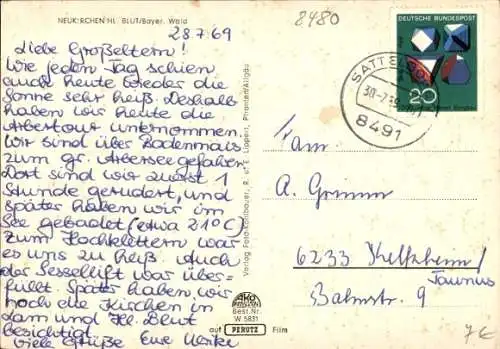 NEUKIRCHEN HL. BLUT/Bayer. Wald
28.7.69
Liebe Großeltern!
Wie jeden Tag schien
auch heute wieder die
Sonne sehr heiß. Deshalb
haben wir heute die
Arbertour unternommen.
Wir sind über Bodenmais
zum gr. Arbersee gefahren
Dort sind wir zuerst 1
Stunde gerudert, und
später haben wir im
See gebadet (etwa 21°C)
Zum Hochklettern war
es uns zu heiß. Auch
der Sessellift war über-
füllt. Später haben wir
noch die Kirchen in
Lam und Hl. Blut
besichtigt.
Viele Grüße Eure Ulrike
Verlag Foto-Kohlbauer, R. u. E. Lippert, Pfronten/Allgäu
ako
Best.Nr.
W 5831
auf PERUTZ Film
8480
DEUTSCHE BUNDESPOST
20
SATTEL
8491
Fam.
A. Grimm
6233 Kelkheim/
Taunus
Bahnstr. 9
7€